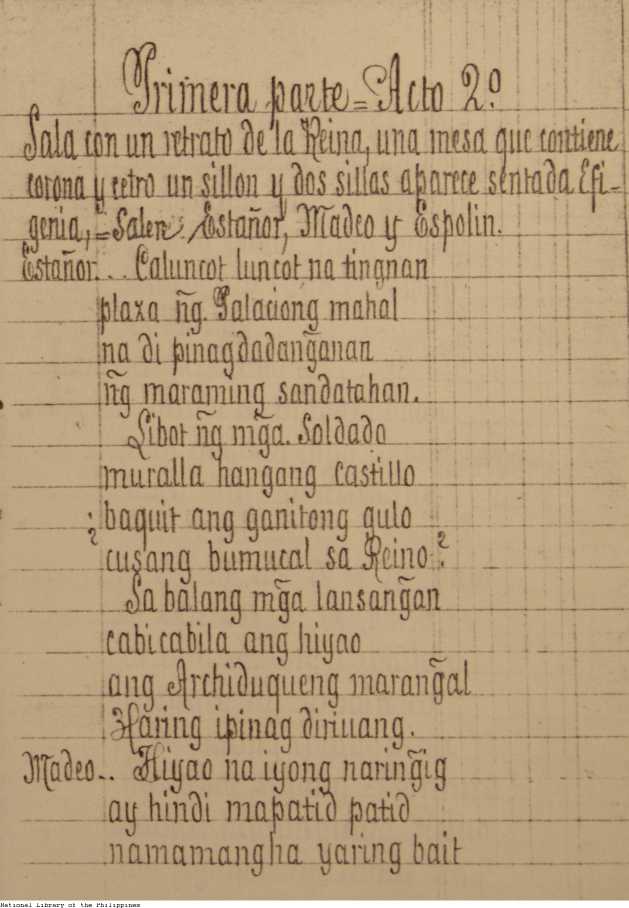 Primera parte = Acto 2.º
Sala con un retrato de la Reina, una mesa que contiene
corona y cetro un sillon y dos sillas aparece sentada Efi-
genia, = Salen. Estañor, Madeo y Espolin.
Estañor... Caluncot luncot na tingnan
plaza ñg. Palaciong mahal
na di pinagdadang̃anan
ñg maraming sandatahan.
Libot ñg mg̃a. Soldado
muralla hangang castillo
¿baquit ang ganitong gulo
cusang bumucal sa Reino?
Sa balang mg̃a lansang̃an
cabicabila ang hiyao
ang Archiduqueng marang̃al
Haring ipinag diriuang.
Madeo.. Hiyao na iyong naring̃ig
ay hindi mapatid patid
namamangha yaring bait
National Library of the Philippines